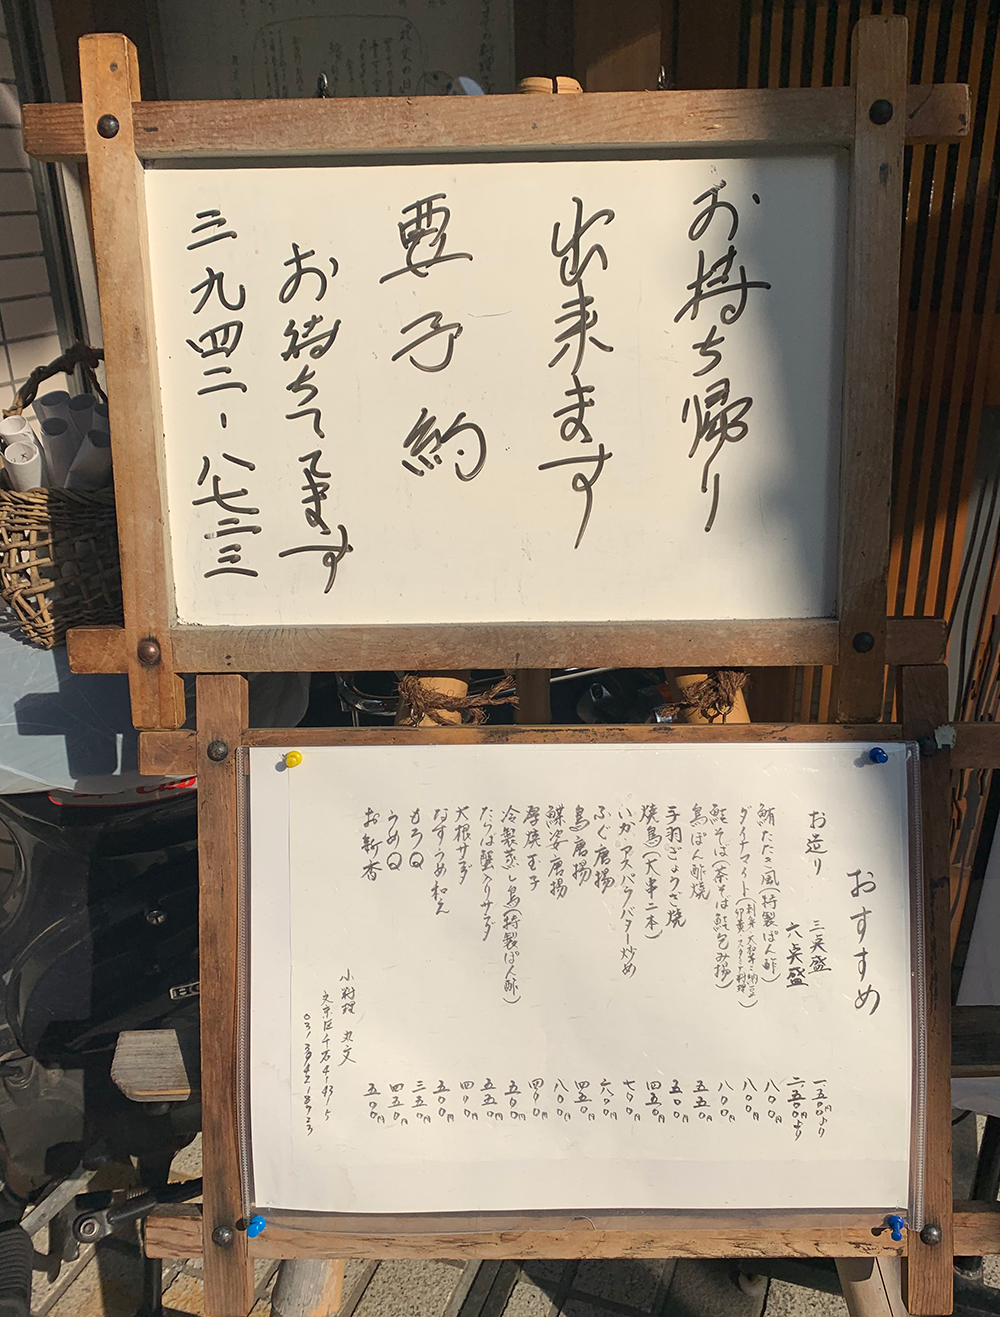 お持ち帰り
出来ます
要予約
お待ちしてます
三九四二-八七二三
おすすめ
お造り 三点盛 一、五〇〇円より
六点盛 二、五〇〇円より
鮪たたき風(特製ぽん酢) 八〇〇円
ダイナマイト(刺身・大和芋・納豆 卵黄・スタミナ料理) 八〇〇円
鮭そば(茶そば鮭包み揚) 八〇〇円
鳥ぽん酢焼 五五〇円
手羽ぎょうざ焼 五〇〇円
焼鳥(大串二本) 四五〇円
いかアスパラバター炒め 七〇〇円
ふぐ唐揚 六〇〇円
鳥唐揚 四五〇円
鰈姿唐揚 八〇〇円
厚焼玉子 四〇〇円
冷製蒸し鳥(特製ぽん酢) 五〇〇円
たらば蟹入りサラダ 五五〇円
大根サラダ 四〇〇円
なすうめ和え 五〇〇円
もろQ 三五〇円
うめQ 四五〇円
お新香 五〇〇円
小料理 丸文
文京区千石4-43-5
03-3942-8723